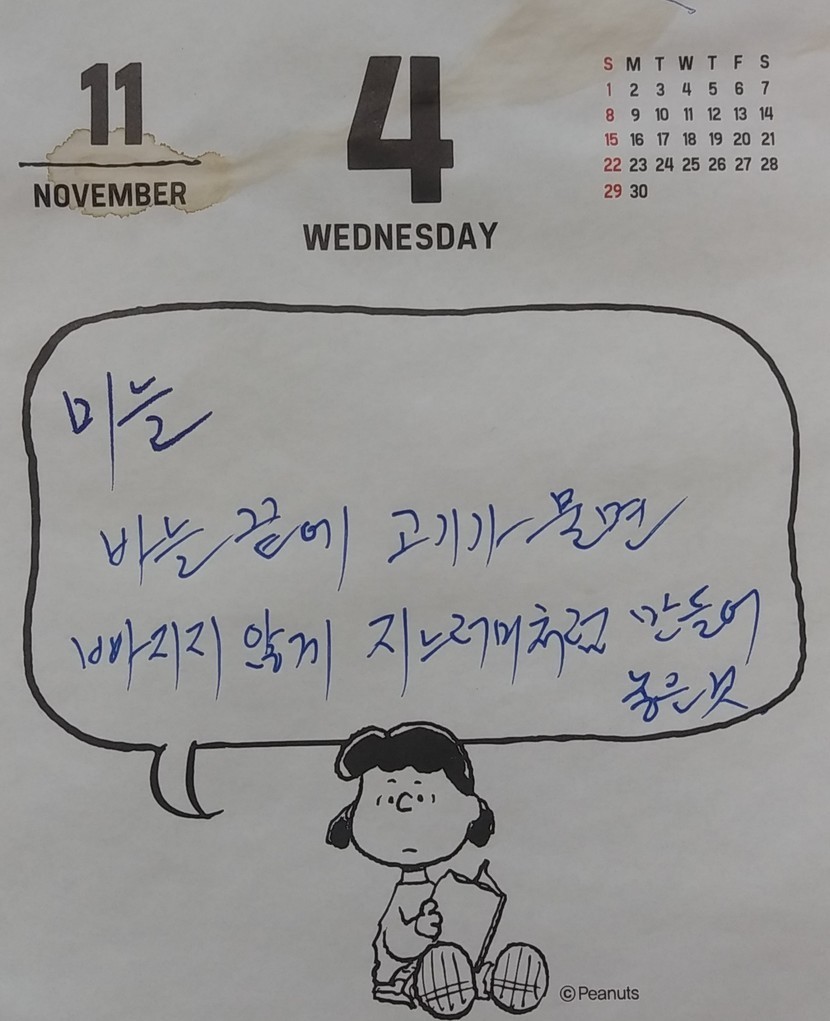 11
NOVEMBER
4
WEDNESDAY
S M T W T F S
1 2 3 4 5 6 7
8 9 10 11 12 13 14
15 16 17 18 19 20 21
22 23 24 25 26 27 28
29 30
미늘
바늘 끝에 고기가 물면
빠지지 않게 지느러미처럼 만들어
놓은 것
©Peanuts